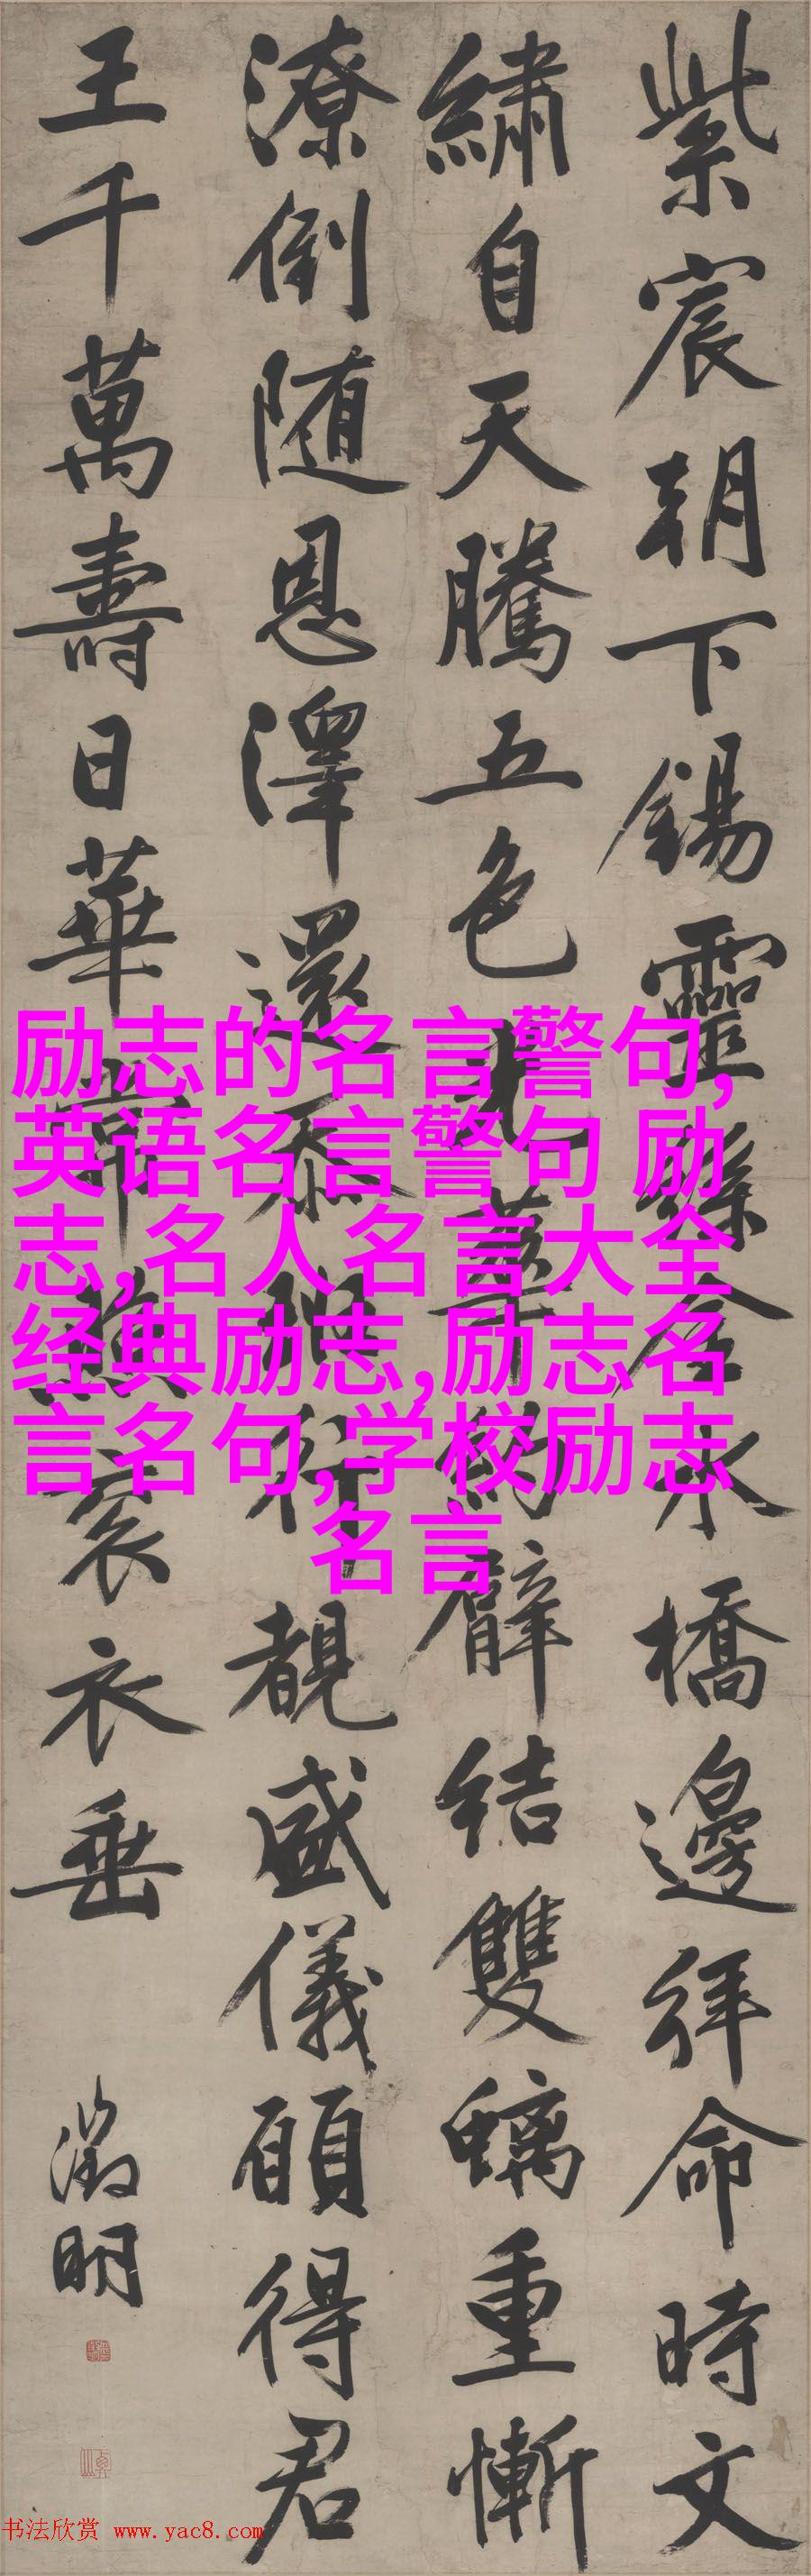 紫宸朝下錫靈絲金水橋邊拜命時文
繡自天騰五色華約臂結雙螭重慚
潦倒随恩澤還忝班行覩盛儀願得君
王千萬壽日華常照衮衣垂
徵明
励志的名言警句,
英语名言警句 励
志,名人名言大全
经典励志,励志名
言名句,学校励志
名言
书法欣赏 www.yac8.com